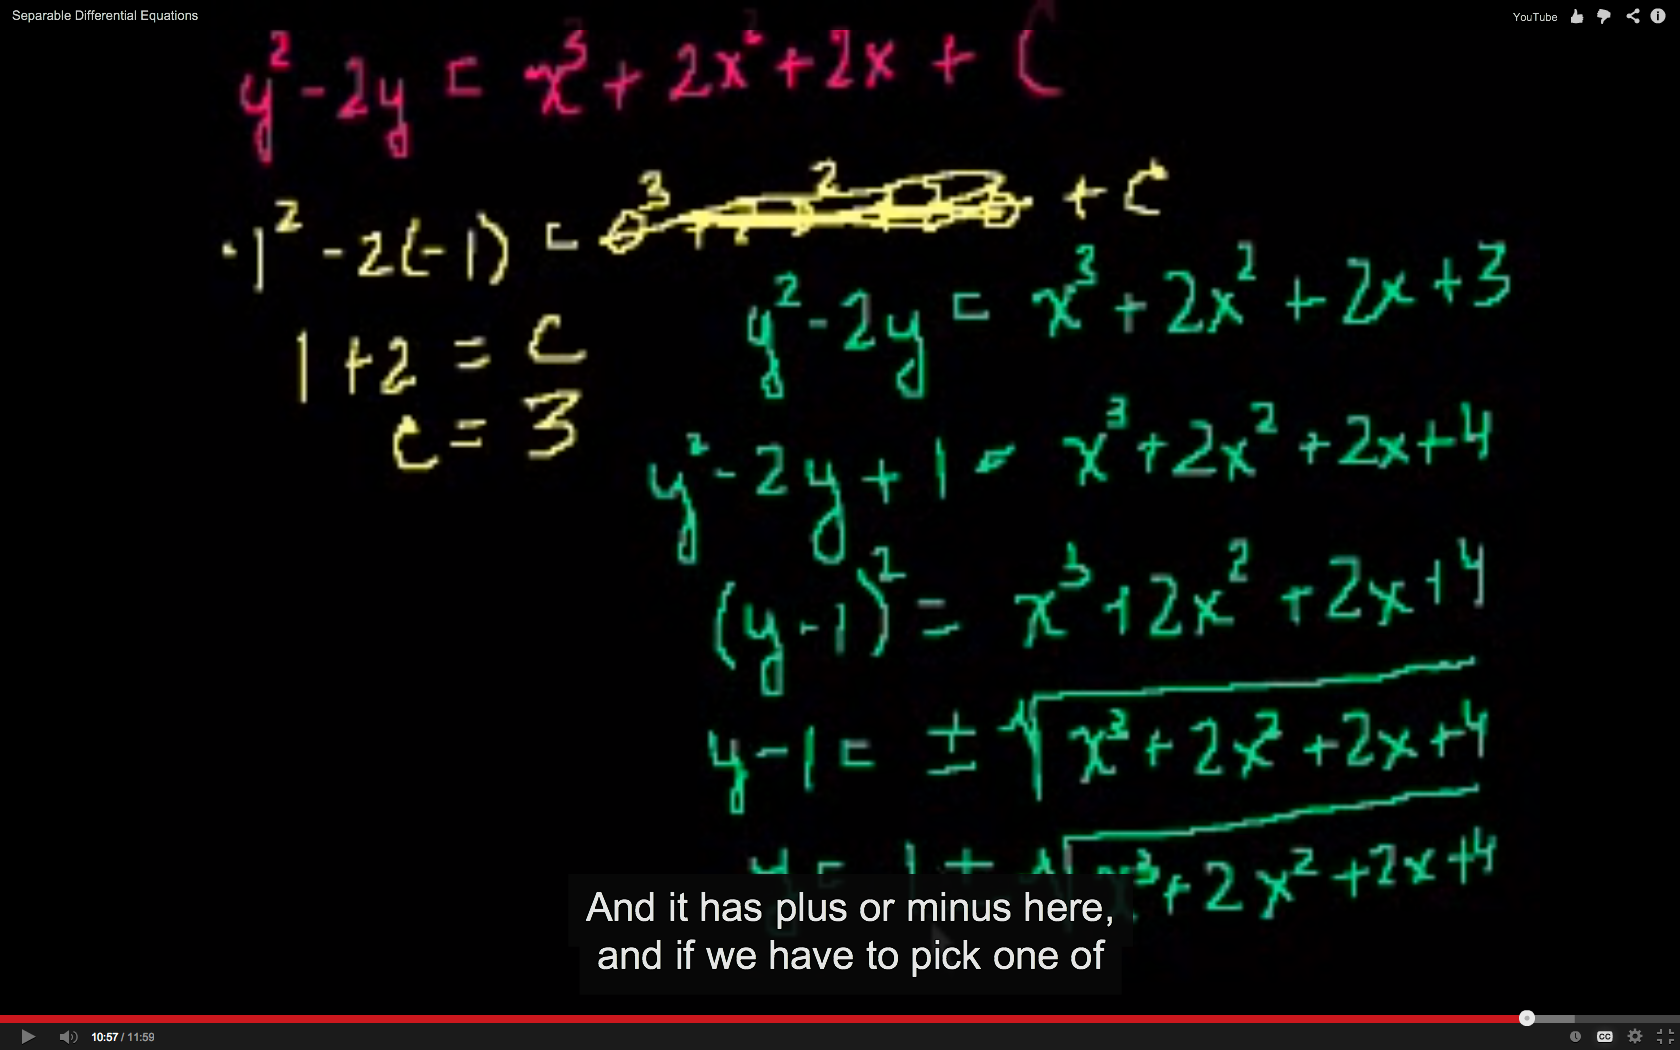 Separable Differential Equations
YouTube
y² - 2y = x³ + 2x² + 2x + C
-1² - 2(-1) = + C
1 + 2 = C
C = 3
y² - 2y = x³ + 2x² + 2x + 3
y² - 2y + 1 = x³ + 2x² + 2x + 4
(y - 1)² = x³ + 2x² + 2x + 4
y - 1 = ± √x³ + 2x² + 2x + 4
y = 1 ± √x³ + 2x² + 2x + 4
And it has plus or minus here,
and if we have to pick one of
10:57 / 11:59
CC